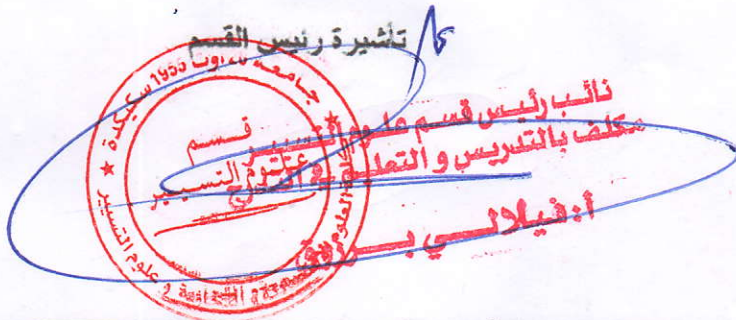 تأشيرة رئيس القسم
جامعة 20 أوت 1955 سكيكدة
قسم
علوم التسيير
نائب رئيس قسم علوم التسيير
مكلف بالتدريس و التعليم في التدرج
أ: فيلالي